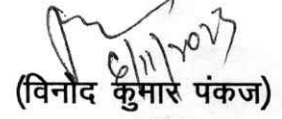 6/11/2023
(विनोद कुमार पंकज)